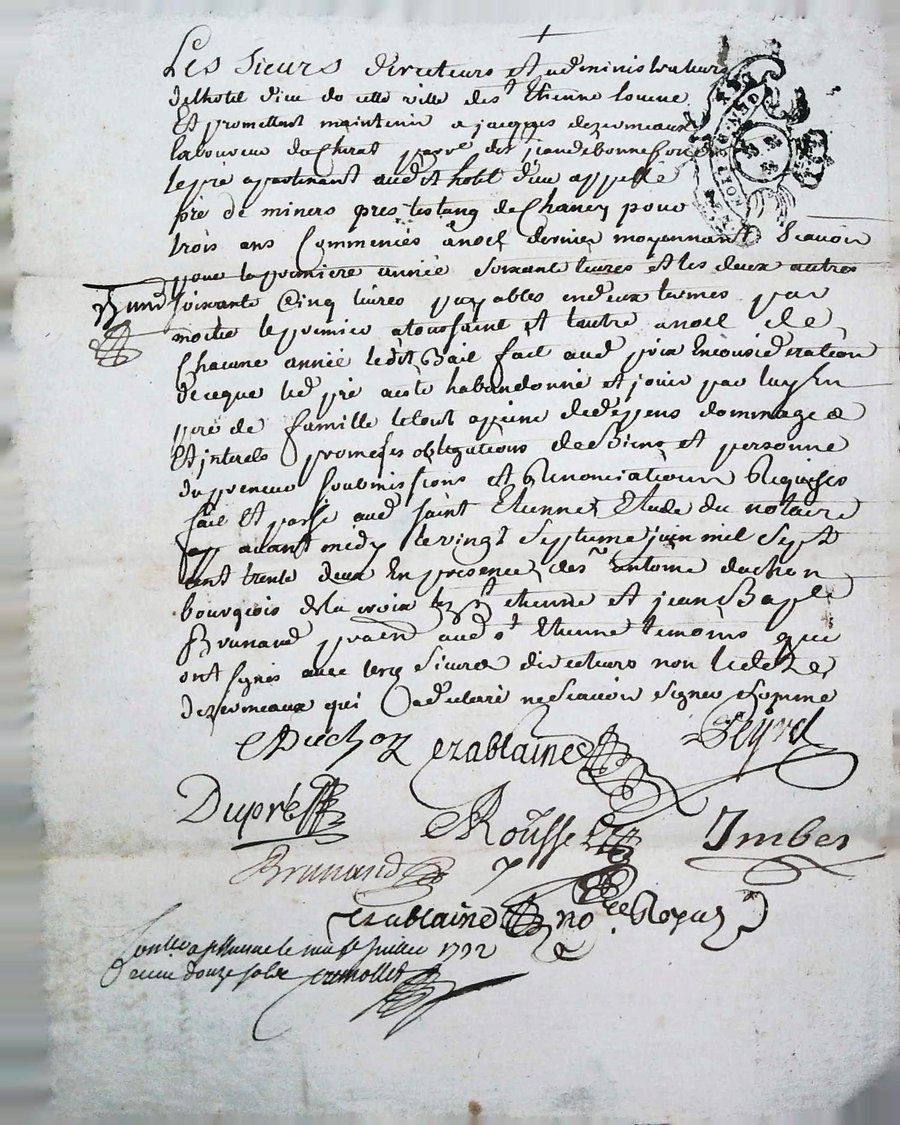 Les Sieurs directeurs et administrateurs
delhotel dieu de cette ville de st Etienne louent
Et promettent maintenir a jacques dezormeaux
laboureur du parre de st jean de bonnefond
le pré apartenant aud it hotel dieu appellé
pré de miners pres lestang de Chaney pour
trois ans Commencés anoel dernier moyennant Scavoir
pour la premiere année Soixante livres et les deux autres
soixante Cinq livres payables en deux termes par
moitié le premier atoussaint et lautre anoel de
Chacune année ledit Bail fait aud prix En considération
de ceque led pré a esté habandonné et jouir par luy En
pere de famille letout apeine de depens dommage &
Et interets promesses obligations de Biens et personne
du preneur Soubmissions et Renonciations Requises
fait et passé aud saint Etienne Etude du notaire
avant midy le vingt Septieme juin mil Sept
cent trente deux En presence de sr antoine duchon
bourgois de la croix st etienne et jean Bapte
Brunand aud st Etienne temoins qui
ont signés avec lesd Sieurs directeurs non ledit
dezormeaux qui a declaré ne Scavoir Signer Somme
Duchon ezablaine Peyret
Dupré Rousset Imber
Brunand
ezablaine no re Royal
1732
Receu douze sols